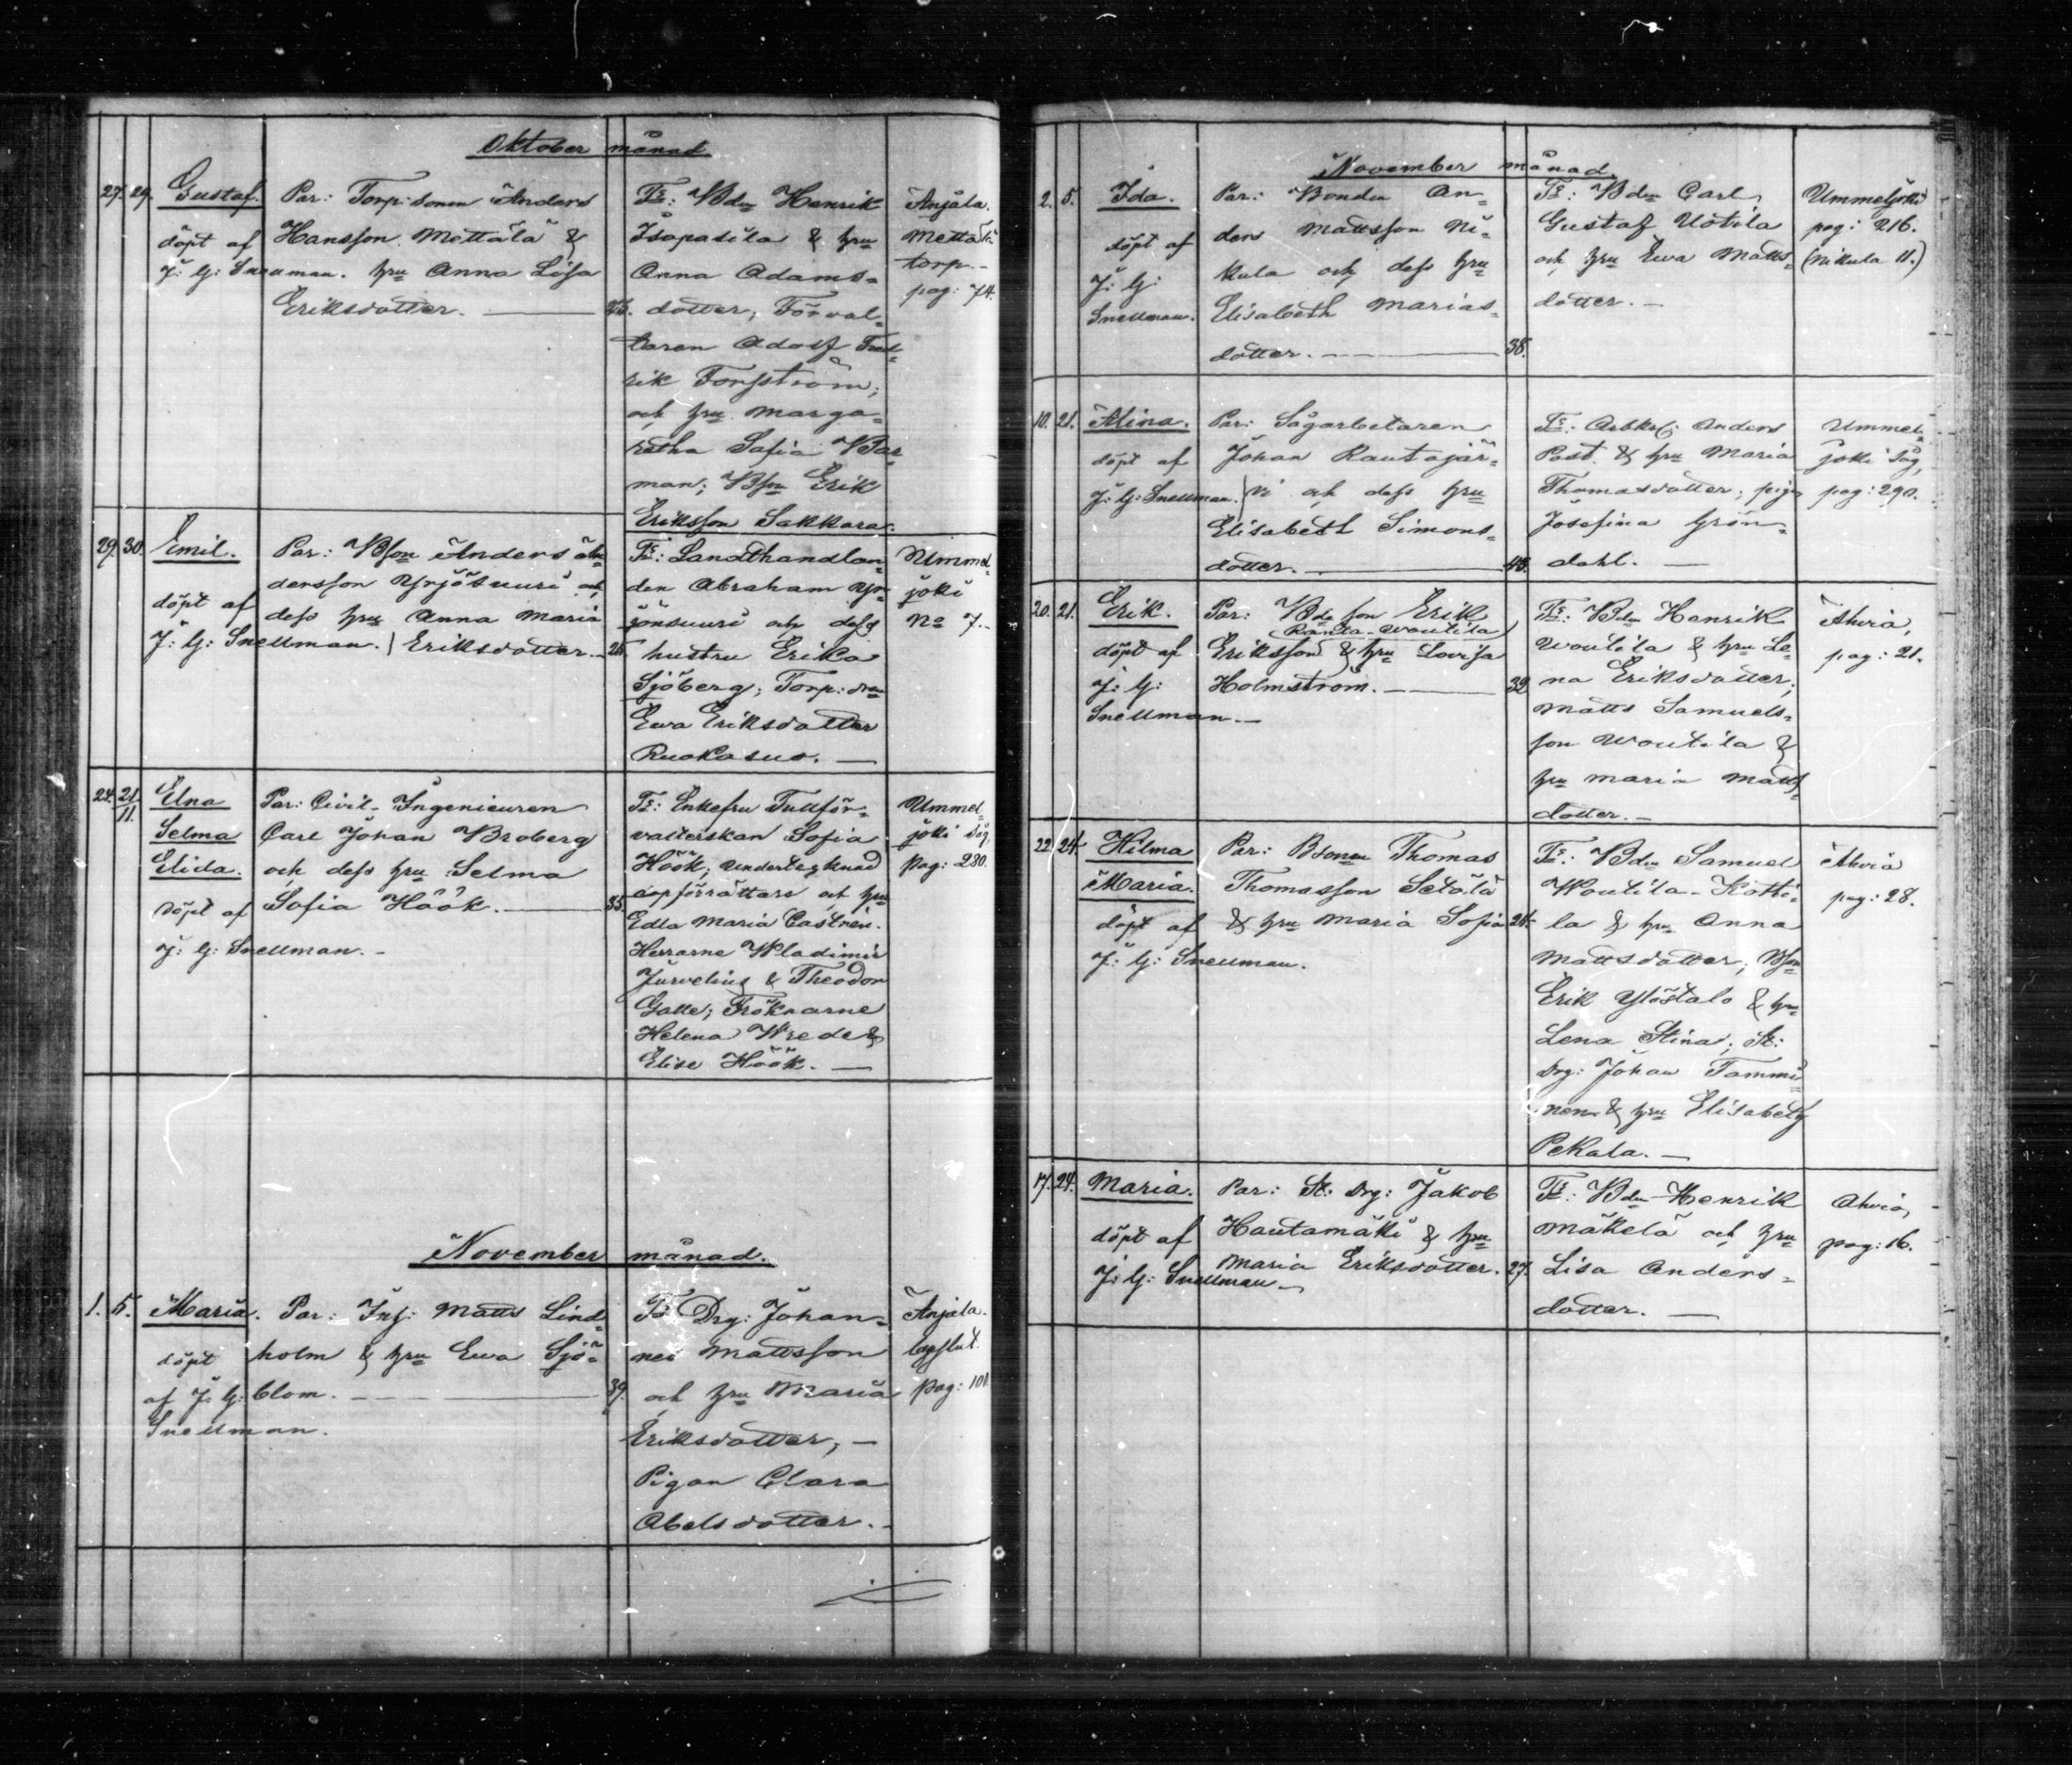 Oktober månad
27. 29. Gustaf.
döpt af
J: G: Snellman.
Par: Torp: sonen Anders
Hansson Mettälä &
hru Anna Lisa
Eriksdotter. — 
Fs: Bdn Henrik
Isopasila & hru
Anna Adams-
dotter; Förval-
taren Adolf Fred-
rik Forsström;
och hru Marga-
retha Sofia
man; Bson Erik
Eriksson Sakkara.
Anjala.
Mettälä
torp.
pag: 74.
29. 30. Emil.
döpt af
J: G: Snellman.
Par: Bson Anders An-
dersson Yrjönsuuri och
dess hru Anna Maria
Eriksdotter. —
Fs: Landthandlan-
den Abraham Yr-
jönsuuri och dess
hustru Erika
Sjöberg; Torp:
Ewa Eriksdotter
Ruokasuo. —
Ummel-
joki
No 7.
24. 21/11. Elna
Selma
Elida.
döpt af
J: G: Snellman. -
Par: Civil-Ingenieuren
Carl Johan Broberg
och dess hru Selma
Sofia Höök. — 35.
Fs: Enkefru Tullför-
valterskan Sofia
Höök; undertecknad
dopförrättare och hru
Edla Maria Castrén.
Herrarne Wladimir
Jurvelius & Theodor
Galle; Fröknarne
Helena Wrede &
Elise Höök. —
Ummel-
joki såg,
pag: 280.
November månad.
1. 5. Maria.
döpt
af J: G:
Snellman.
Par: Inh: Matts Lind-
holm & hru Ewa Sjö-
blom. — 39.
Fs Drg: Johan-
nes Mattsson
och hru Maria
Eriksdotter, —
Pigan Clara
Abelsdotter. -
Anjala.
pag: 101
November månad.
2. 5. Ida.
döpt af
J: G:
Snellman.
Par: Bonden An-
ders Mattsson Ni-
kula och dess hru
Elisabeth Marias-
dotter. — 38.
Fs: Bdn Carl
Gustaf Uotila
och hru Ewa Matts-
dotter. —
Ummeljoki
pag: 216.
(Nikula 11.)
10. 21. Alina.
döpt af
J: G: Snellman.
Par: Sågarbetaren
Johan Rautajär-
vi och dess hru
Elisabeth Simons-
dotter. — 40.
Fs: Arbkrl; Anders
Post & hru Maria
Thomasdotter; pig
Josefina Grön-
dahl. —
Ummel-
joki såg,
pag: 290.
20. 21. Erik.
döpt af
J: G:
Snellman. —
Par: Bdeson Erik
(Ranta-Woutila)
Eriksson & hru Lovisa
Holmström. — 32
Fs: Bdn Henrik
Woutila & hru Le-
na Eriksdotter;
Matts Samuels-
son Woutila &
hru Maria Matts-
dotter. —
Ahvio,
pag: 21.
22. 24. Hilma
Maria.
döpt af
J: G: Snellman.
Par: Bsonen Thomas
Thomasson Setälä
& hru Maria Sofia 24.
Fs: Bdn Samuel
Woutila-Kotti-
la & hru Anna
Mattsdotter; Bson
Erik Ylöstalo & hru
Lena Stina; St:
Drg: Johan Tammi-
nen & hru Elisabeth
Pekala. —
Ahvio
pag: 28.
17. 24. Maria.
döpt af
J: G: Snellman. —
Par: St: Drg: Jakob
Hautamäki & hru
Maria Eriksdotter. 27.
Fs: Bdn Henrik
Mäkelä och hru
Lisa Anders-
dotter. —
Ahvio,
pag: 16.